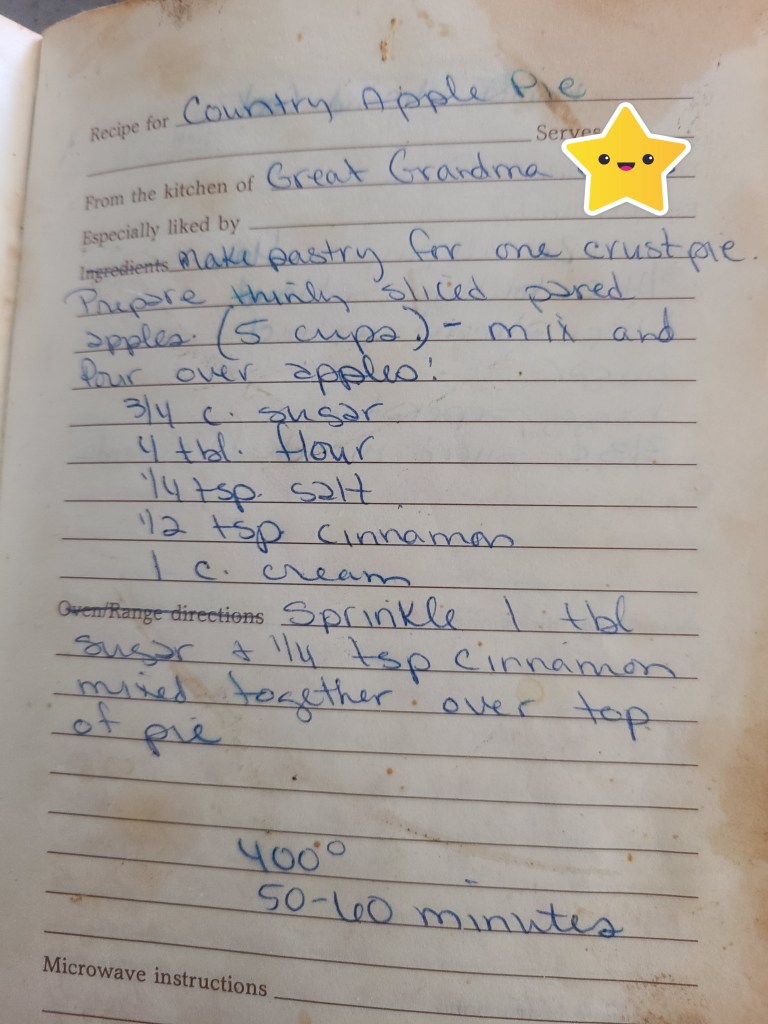 Recipe for Country Apple Pie
Serves
From the kitchen of Great Grandma
Especially liked by
Ingredients Make pastry for one crust pie.
Prepare thinly sliced pared
apples. (5 cups.) - mix and
Pour over apples:
3/4 c. sugar
4 tbl. flour
1/4 tsp. salt
1/2 tsp cinnamon
1 c. cream
Oven/Range directions Sprinkle 1 tbl
sugar & 1/4 tsp cinnamon
mixed together over top
of pie
400°
50-60 minutes
Microwave instructions